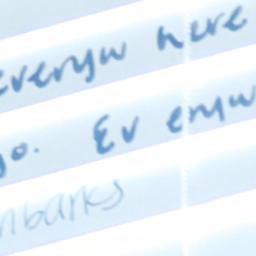 everyw here
go. Ev eryw
nbanks